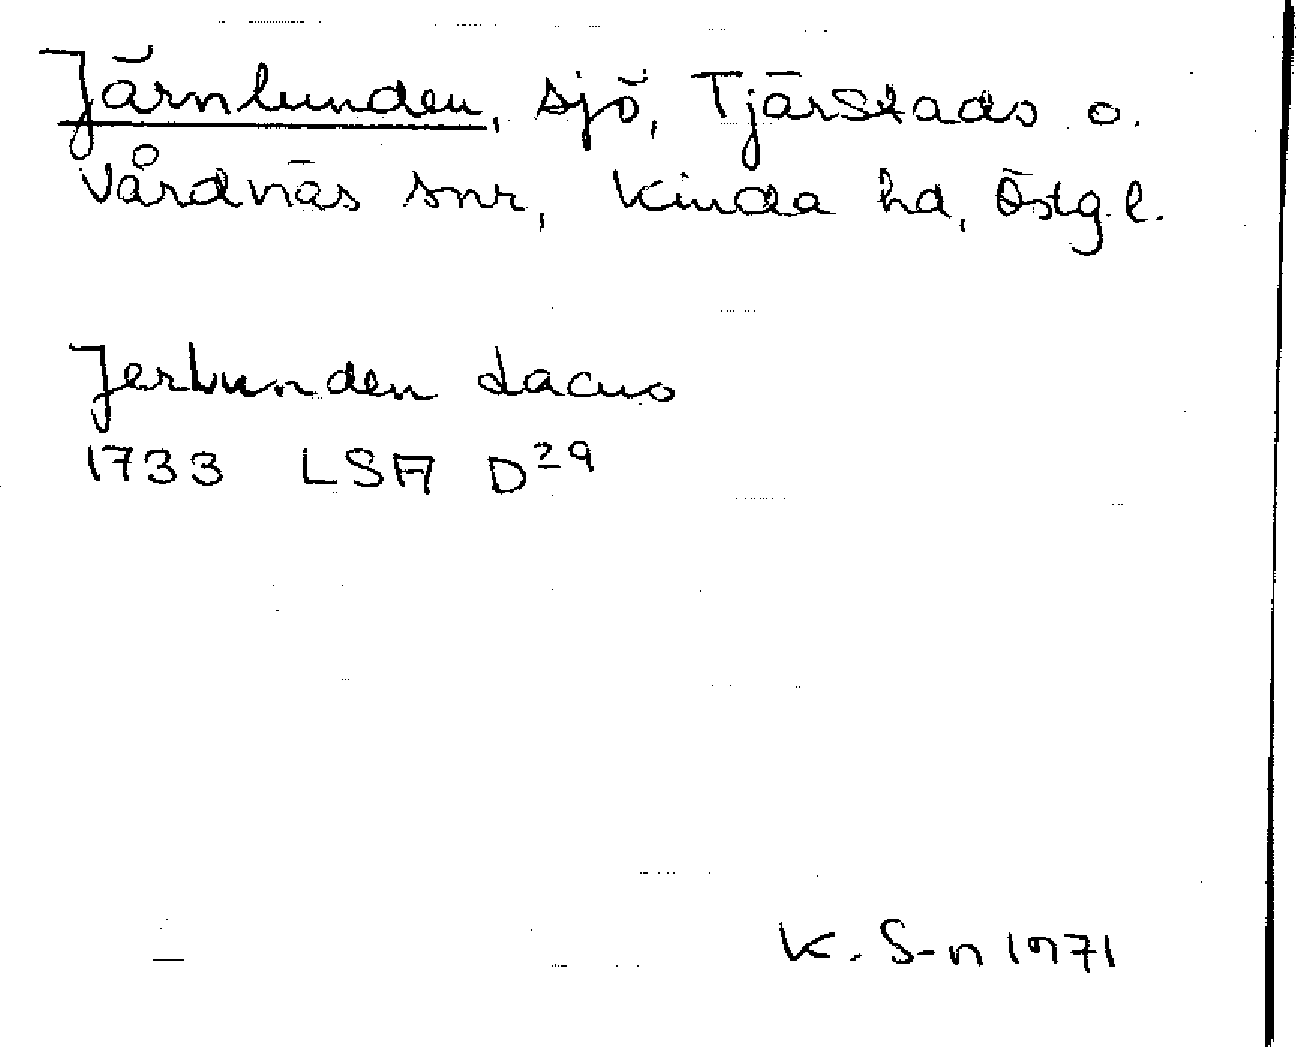 Järnlunden, sjö, Tjärstads o.
Vårdnäs snr, Kinda hd, Östg.l.
Jerlunden Lacus
1733 LSA D29
K. S-n 1971